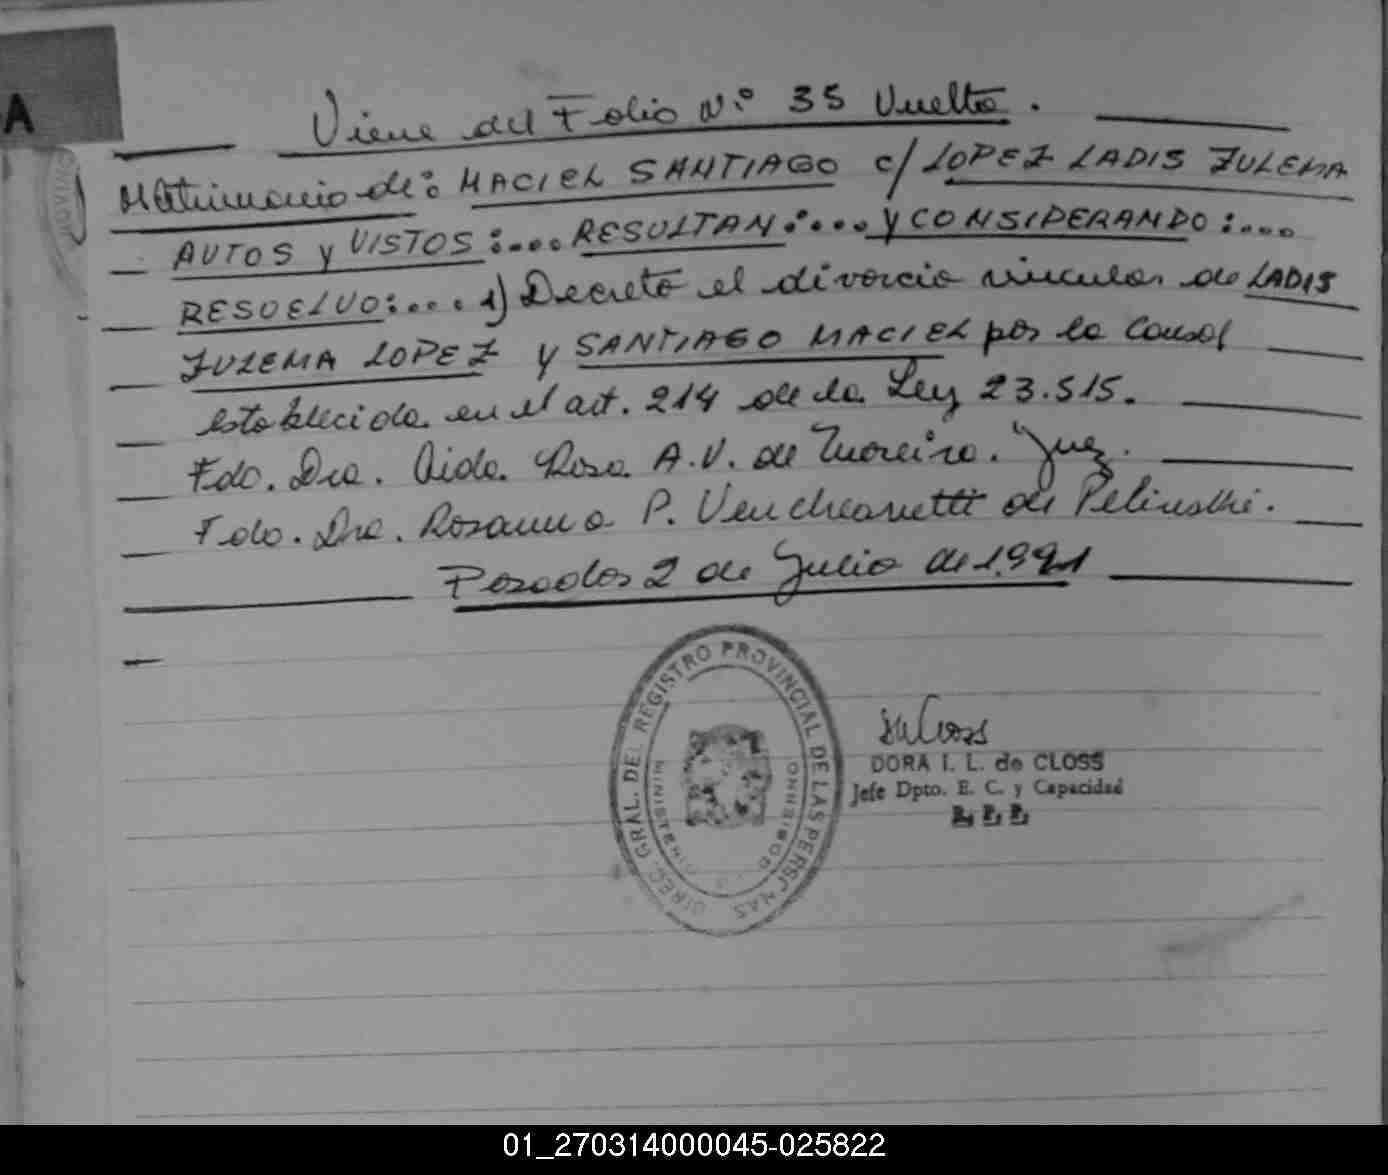 A
Viene del Folio N.º 35 Vuelta.
Matrimonio de: MACIEL SANTIAGO c/ LOPEZ LADIS ZULEMA
AUTOS y VISTOS:.... RESULTAN:.... y CONSIDERANDO:....
RESUELVO:.... 1) Decreto el divorcio vincular de LADIS
ZULEMA LOPEZ y SANTIAGO MACIEL por la causal
establecida en el art. 214 de la Ley 23.515.
Fdo. Dra. Aida Rosa A.V. de Moreira. Juez.
Fdo. Dra. Rosanna P. Venchiarutti de
Posadas 2 de Julio de 1.991
DIREC. GRAL. DEL REGISTRO PROVINCIAL DE LAS PERSONAS
MINISTERIO GOBIERNO
DORA I. L. de CLOSS
Jefe Dpto. E. C. y Capacidad
R. P. P.
01_270314000045-025822